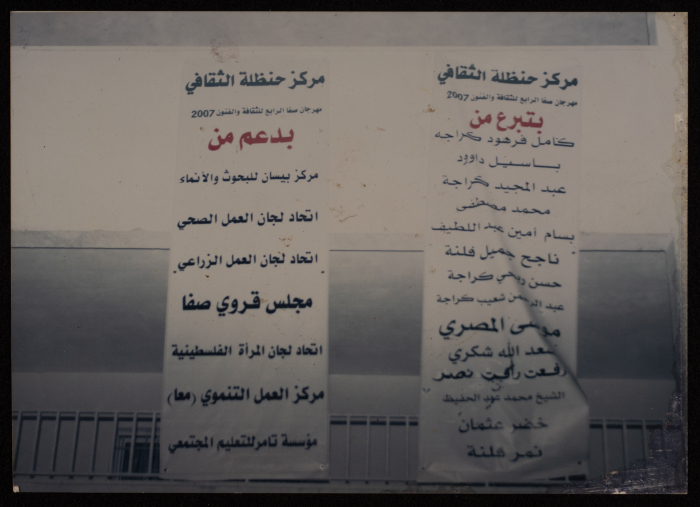 مركز حنظلة الثقافي
مهرجان صفا الرابع للثقافة والفنون 2007
بتبرع من
كامل فرهود كراجه
باسيل داوود
عبد المجيد كراجة
محمد مصطفى
بسام امين عبد اللطيف
ناجح جميل فلنة
حسن ربحي كراجة
عبد الرحمن شعيب كراجة
موسى المصري
سعد الله شكري
رفعت رأفت نصر
الشيخ محمد عبد الحفيظ
خضر عثمان
نمر فلنة
مركز حنظلة الثقافي
مهرجان صفا الرابع للثقافة والفنون 2007
بدعم من
مركز بيسان للبحوث والأنماء
اتحاد لجان العمل الصحي
اتحاد لجان العمل الزراعي
مجلس قروي صفا
اتحاد لجان المرأة الفلسطينية
مركز العمل التنموي (معا)
مؤسسة تامر للتعليم المجتمعي